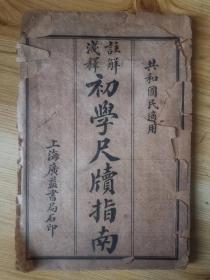 共和國民適用
註解
淺釋
初學尺牘指南
上海廣益書局石印